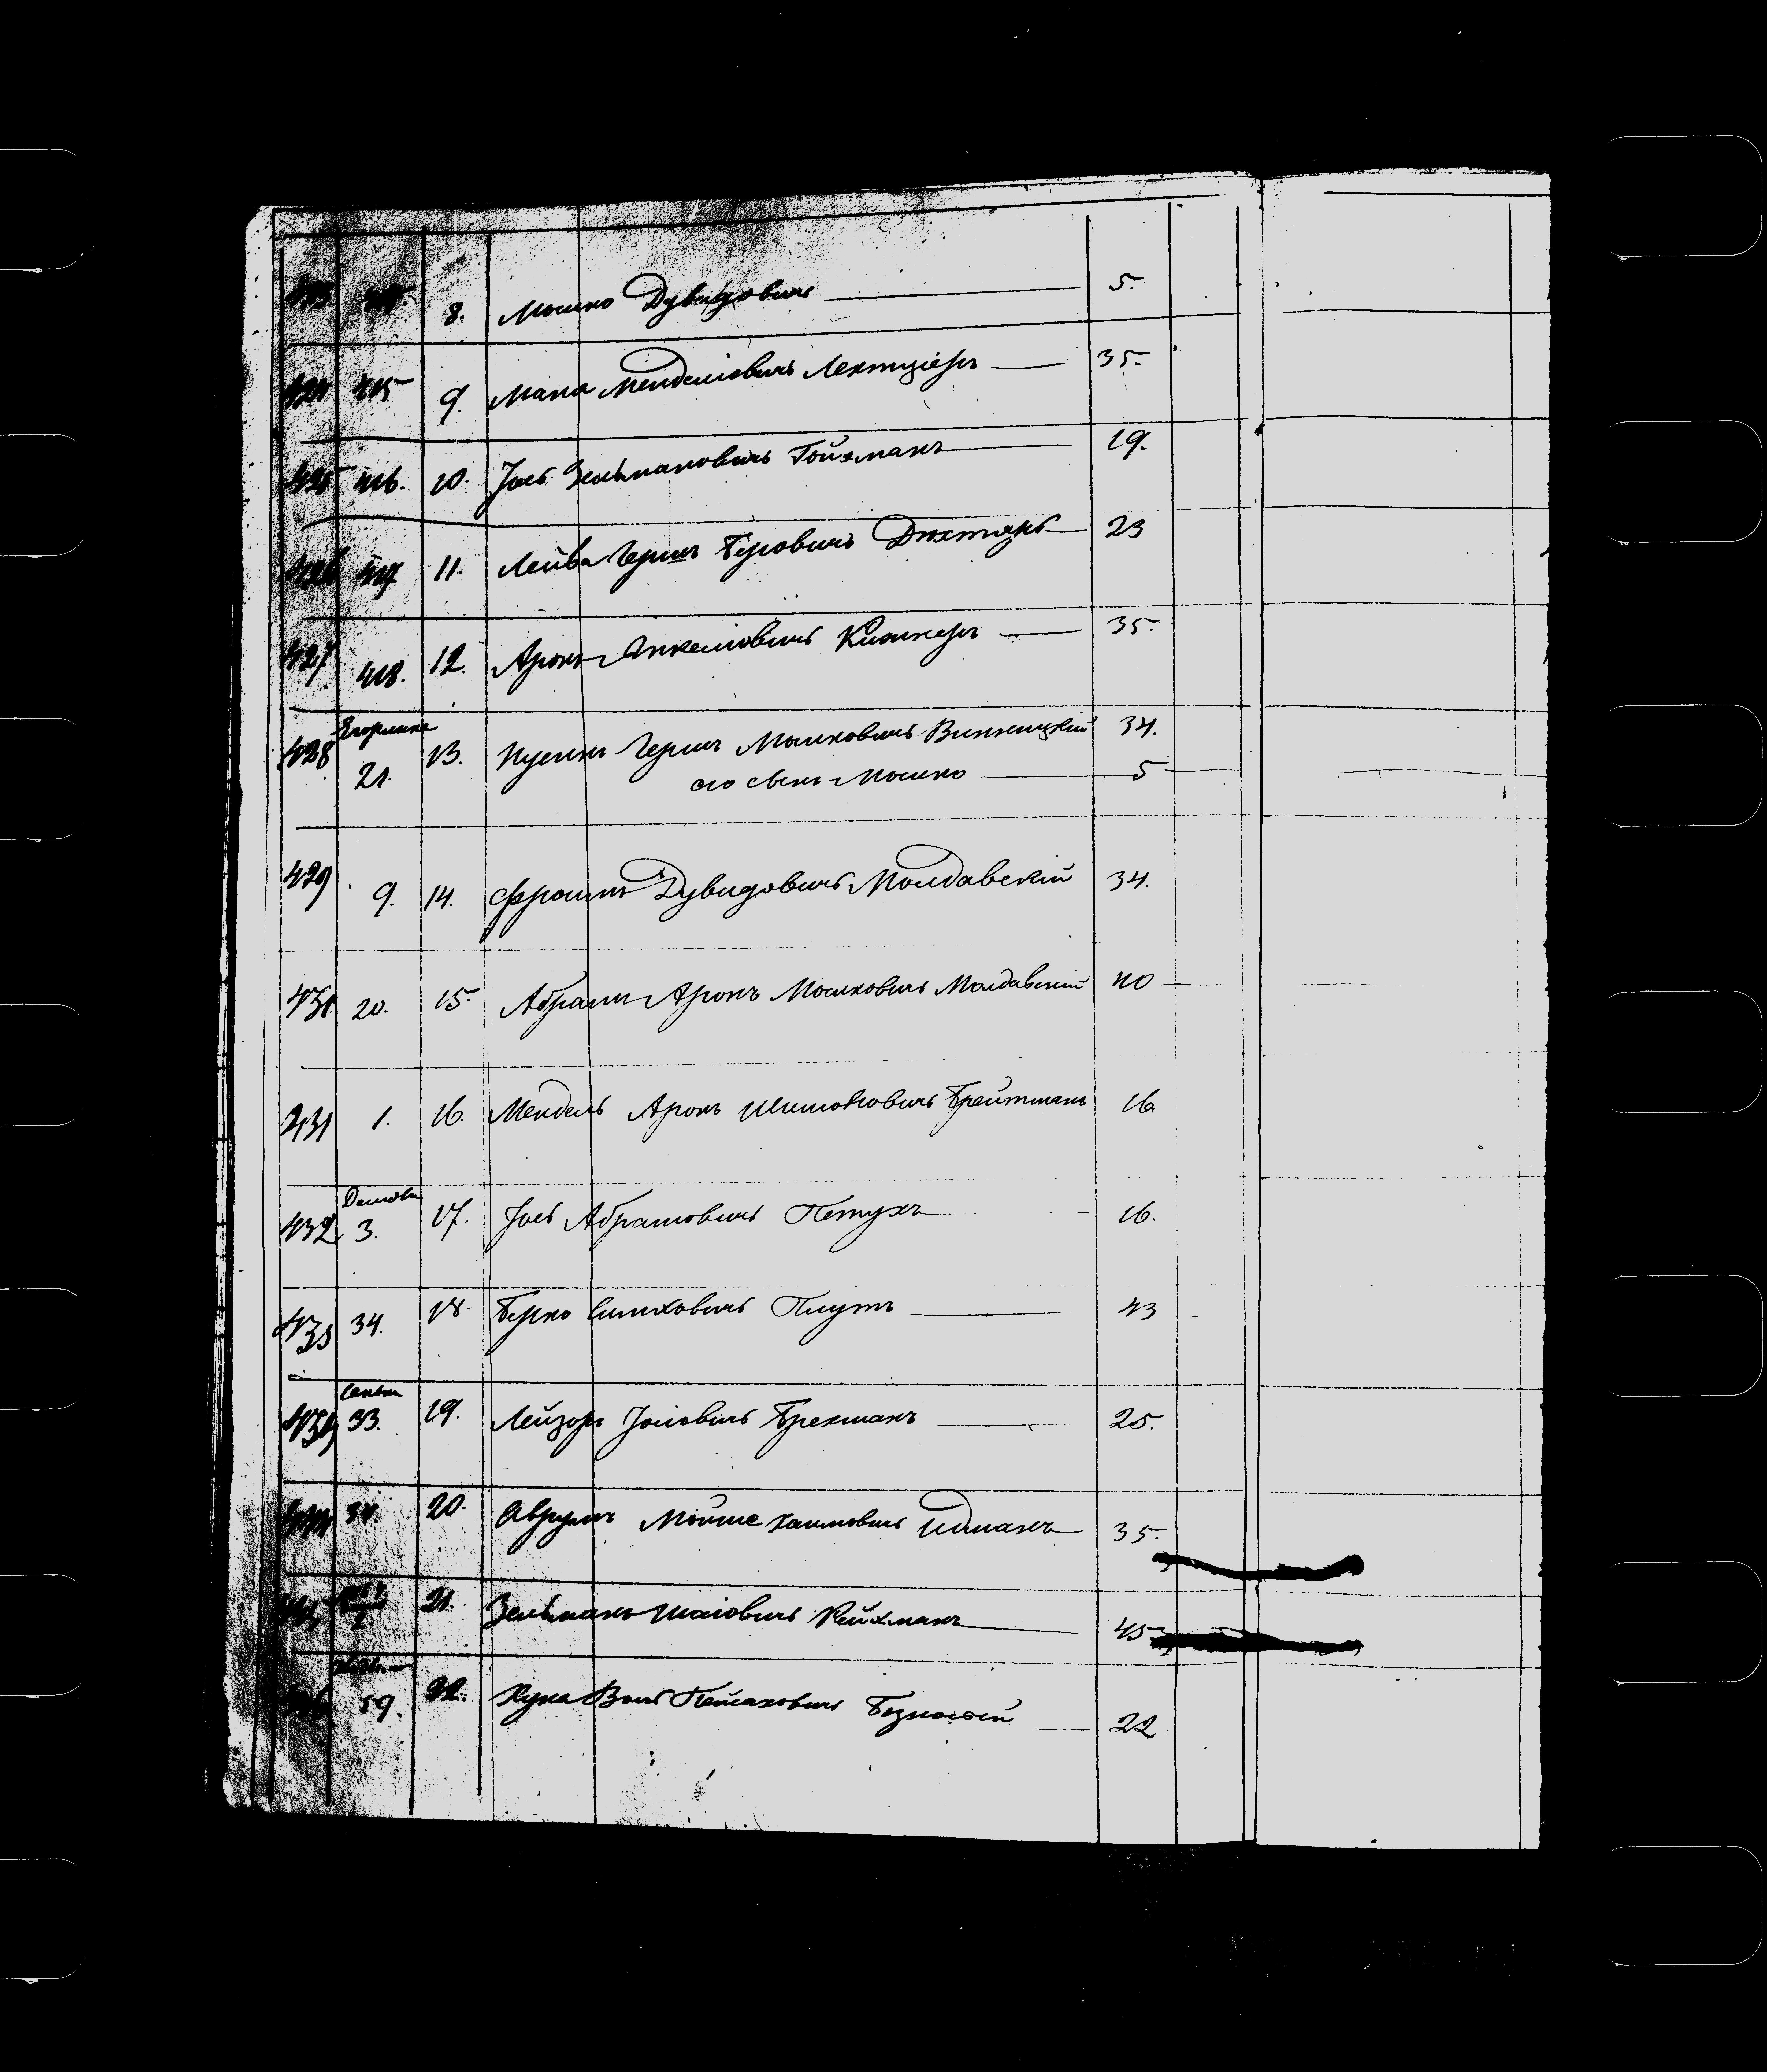 8. Мошко Дувидовичъ 5.
424 415 9. Мана Менделіовичъ Лехтціеръ 35.
425 416. 10. Іось Зельмановичъ Гойхманъ 19.
426 417 11. Лейба Гершъ Беровичъ Дихтяръ 23
427 418. 12. Аронъ Янкеліовичъ Кижнеръ 35.
428 21. 13. Нусинъ Гершъ Мошковичъ Винницкій 34.
его сынъ Мошко 5
429 9. 14. Фроимъ Дувидовичъ Молдавскій 34.
430. 20. 15. Абрамъ Аронъ Мошковичъ Молдавскій 40
431 1. 16. Мендель Аронъ Шимоновичъ Брейтманъ 16
432 3. 17. Іось Абрамовичъ Петухъ 16.
433 34. 18. Берко Симховичъ Плутъ 43
33. 19. Лейзоръ Іосіовичъ Брехманъ 25.
34. 20. Аврумъ Мойше Хаимовичъ Идманъ 35.
21. Зельманъ Шаіовичъ Рейхманъ 45
59. 22. Вольъ Пейсаховичъ 22